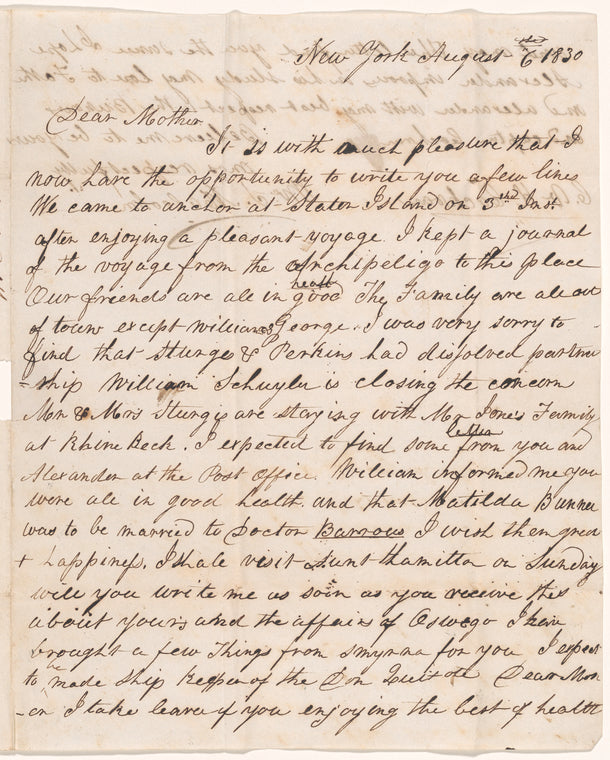 New York August 6th 1830
Dear Mother
It is with much pleasure that I
now have the opportunity to write you a few lines
We came to anchor at Staten Island on 3rd Inst
after enjoying a pleasant voyage. I kept a journal
of the voyage from the Archipeligo to this place
Our friends are all in good health The Family are all out
of town except William & George. I was very sorry to
find that Sturges & Perkins had dissolved partner
-ship William Schuyler is closing the concern
Mr & Mrs Sturgis are staying with Mr Jones Family
at Rhine Beck. I expected to find some letter from you and
Alexander at the Post Office. William informed me you
were all in good health and that Matilda Bunner
was to be married to Doctor Barrows I wish them grea
t happiness. I shall visit Aunt Hamilton on Sunday
will you write me as soin as you receive this
about yours and the affairs of Oswego I have
brought a few things from smyrna for you I expect
to be made Ship Keeper of the Don Quixote Dear Mo
er I take leave of you enjoying the best of health